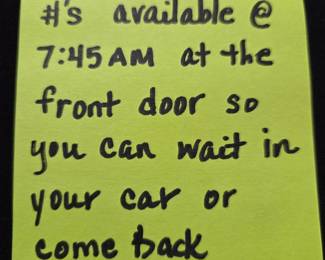 #'s available @
7:45 AM at the
front door so
you can wait in
your car or
come back